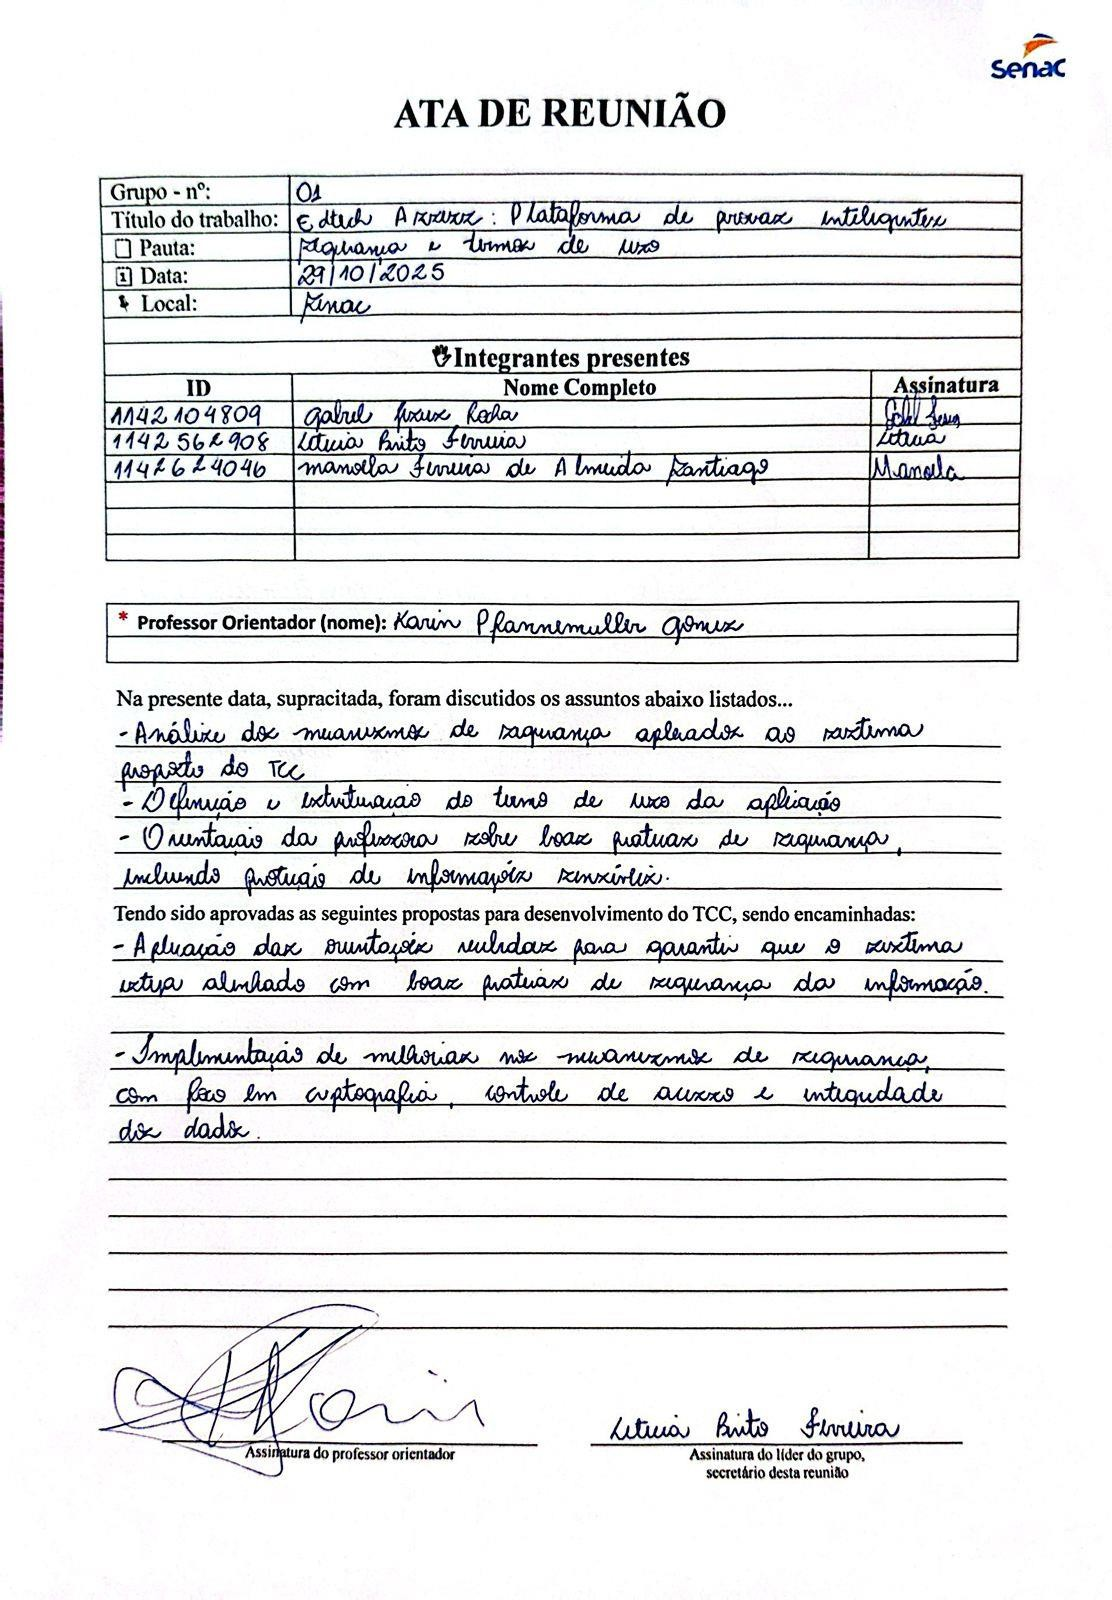 Senac
ATA DE REUNIÃO
Grupo - nº: 01
Título do trabalho: Edtech Assess: Plataforma de provas inteligentes
Pauta: segurança e termos de uso
Data: 29/10/2025
Local: Senac
Integrantes presentes
ID Nome Completo Assinatura
1142104809 Gabriel Jesus Rocha Gabriel Jesus
1142562908 Leticia Brito Ferreira Leticia
1142624046 manoella Ferreira de Almeida Santiago Manoella
* Professor Orientador (nome): Karin Pfannemuller Gomes
Na presente data, supracitada, foram discutidos os assuntos abaixo listados...
- Análise dos mecanismos de segurança aplicados ao sistema
proposto do TCC
- Definição e estruturação do termo de uso da aplicação
- Orientação da professora sobre boas praticas de segurança,
incluindo proteção de informações sensíveis.
Tendo sido aprovadas as seguintes propostas para desenvolvimento do TCC, sendo encaminhadas:
- Aplicação das orientações recebidas para garantir que o sistema
esteja alinhado com boas praticas de segurança da informação.
- Implementação de melhorias nos mecanismos de segurança,
com foco em criptografia, controle de acesso e integridade
dos dados.
Karin
Leticia Brito Ferreira
Assinatura do professor orientador
Assinatura do líder do grupo,
secretário desta reunião